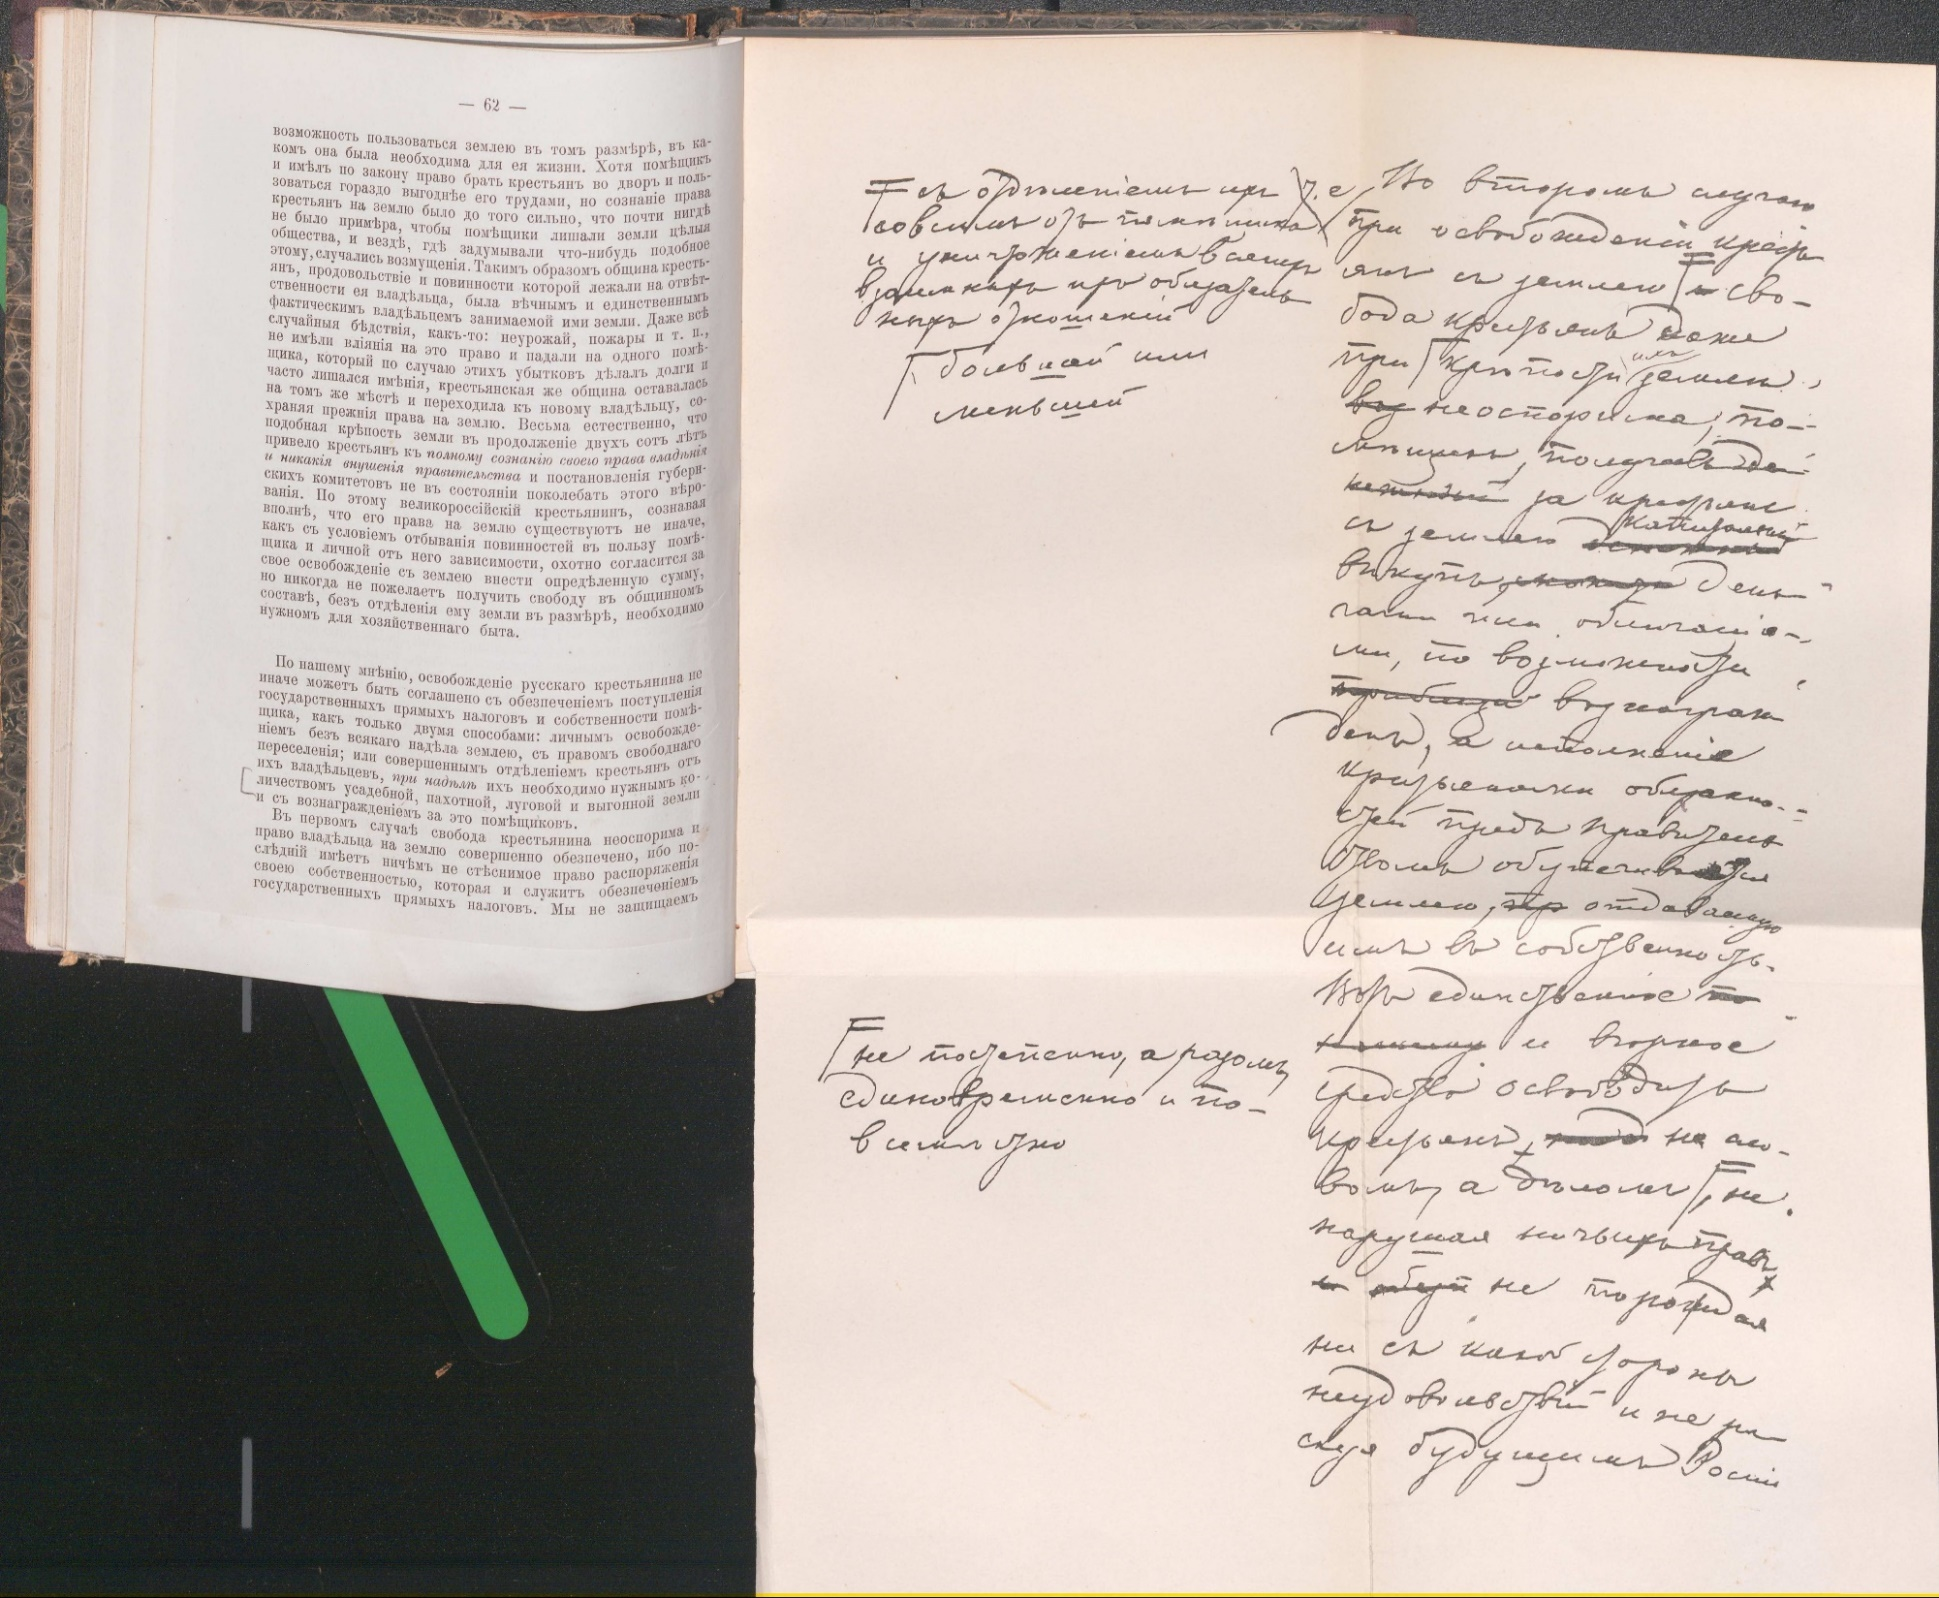 — 62 —
возможность пользоваться землею въ томъ размѣрѣ, въ ка-
комъ она была необходима для ея жизни. Хотя помѣщикъ
и имѣлъ по закону право брать крестьянъ во дворъ и поль-
зоваться гораздо выгоднѣе его трудами, но сознаніе права
крестьянъ на землю было до того сильно, что почти нигдѣ
не было примѣра, чтобы помѣщики лишали земли цѣлыя
общества, и вездѣ, гдѣ задумывали что-нибудь подобное
этому, случались возмущенія. Такимъ образомъ община кресть-
янъ, продовольствіе и повинности которой лежали на отвѣт-
ственности ея владѣльца, была вѣчнымъ и единственнымъ
фактическимъ владѣльцемъ занимаемой ими земли. Даже всѣ
случайныя бѣдствія, какъ-то: неурожай, пожары и т. п.,
не имѣли вліянія на это право и падали на одного помѣ-
щика, который по случаю этихъ убытковъ дѣлалъ долги и
часто лишался имѣнія, крестьянская же община оставалась
на томъ же мѣстѣ и переходила къ новому владѣльцу, со-
храняя прежнія права на землю. Весьма естественно, что
подобная крѣпость земли въ продолженіе двухъ сотъ лѣтъ
привело крестьянъ къ полному сознанію своего права владѣнія
и никакія внушенія правительства и постановленія губерн-
скихъ комитетовъ не въ состояніи поколебать этого вѣро-
ванія. По этому великороссійскій крестьянинъ, сознавая
вполнѣ, что его права на землю существуютъ не иначе,
какъ съ условіемъ отбыванія повинностей въ пользу помѣ-
щика и личной отъ него зависимости, охотно согласится за
свое освобожденіе съ землею внести опредѣленную сумму,
но никогда не пожелаетъ получить свободу въ общинномъ
составѣ, безъ отдѣленія ему земли въ размѣрѣ, необходимо
нужномъ для хозяйственнаго быта.
По нашему мнѣнію, освобожденіе русскаго крестьянина не
иначе можетъ быть соглашено съ обезпеченіемъ поступленія
государственныхъ прямыхъ налоговъ и собственности помѣ-
щика, какъ только двумя способами: личнымъ освобожде-
ніемъ безъ всякаго надѣла землею, съ правомъ свободнаго
переселенія; или совершеннымъ отдѣленіемъ крестьянъ отъ
ихъ владѣльцевъ, при надѣлѣ ихъ необходимо нужнымъ ко-
личествомъ усадебной, пахотной, луговой и выгонной земли
и съ вознагражденіемъ за это помѣщиковъ.
Въ первомъ случаѣ свобода крестьянина неоспорима и
право владѣльца на землю совершенно обезпечено, ибо по-
слѣдній имѣетъ ничѣмъ не стѣснимое право распоряженія
своею собственностью, которая и служитъ обезпеченіемъ
государственныхъ прямыхъ налоговъ. Мы не защищаемъ
съ отдѣленіемъ ихъ
совсѣмъ отъ помѣщика
и уничтоженіемъ всякихъ
взаимныхъ ихъ обязатель
ныхъ отношеній
большей или
меньшей
не постепенно, а разомъ,
единовременно и по-
всемѣстно
т. е. Во второмъ случаѣ
при освобожденіи кресть
янъ съ землею и сво-
бода крестьянъ даже
при крѣпости имъ земли
неоспорима; по-
мѣщикъ, получивъ
за крестьянъ
съ землею капитальный
выкупъ, день-
гами или облигаціа-
ми, по возможности
вознаграж
денъ, а исполненіе
крестьянами обязанно-
стей предъ правитель
ствомъ обезпечивается
землею, отдаваемую
имъ въ собственность.
Вотъ единственное
и вѣрное
средство освободить
крестьянъ, не сло-
вомъ, а дѣломъ, не
нарушая ничьихъ правъ,
не порождая
ни съ какой стороны
неудовольствій и не ри
скуя будущимъ Россіи